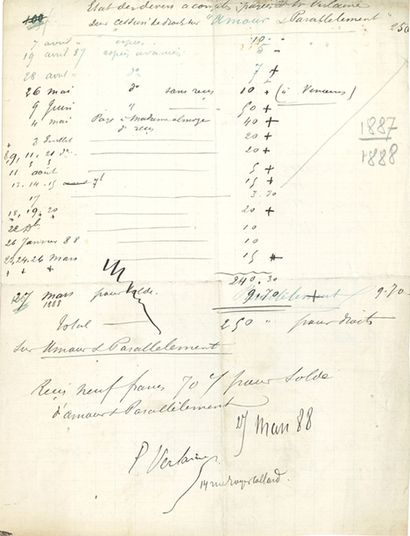 100 Etat des divers acomptes payés à Mr Verlaine
Sur cession de droits sur "Amour & Parallèlement" 250
7 avril espèces 10
19 avril 87 espèces avancées 5
28 avril do 7 +
26 mai do sans reçu 10 + (à Vanier)
9 Juin " 50 +
4 mai Payé à Madame 40 +
& reçu 20 +
3 Juillet 20 +
8, 9, 11, 21 do
11 août 5 +
12. 14. 15 15 +
17 3.30
18, 19, 20 20 +
22 10
26 Janvier 88 10
22, 24. 26 Mars 15
1887
1888
240.30
27 mars pour solde. 9.70 9.70
1888
Total 250 " pour droits
sur Amour & Parallèlement
Reçu neuf francs 70 c/ pour solde
d'amour & Parallèlement
27 Mars 88
P. Verlaine
14 rue royer collard.